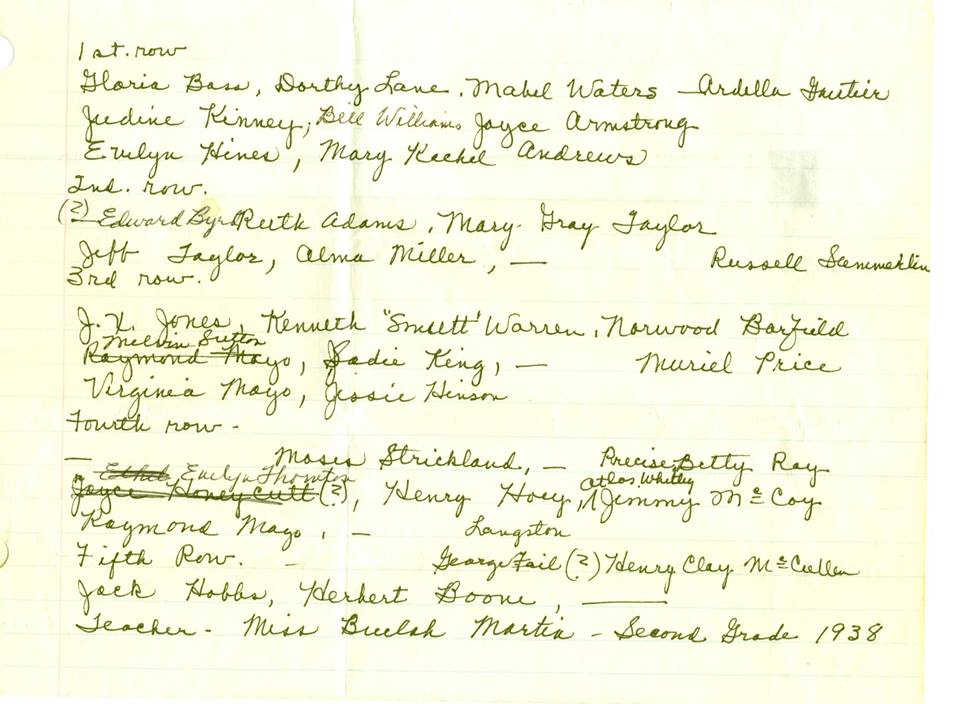 1st. row
Gloria Bass, Dorthy Lane, Mabel Waters — Ardella Gautier
Judine Kinney, Bill Williams Joyce Armstrong
Evelyn Hines, Mary Rachel Andrews
2nd. row.
(?) — Edward Byrd Ruth Adams, Mary Gray Taylor
Jeff Taylor, Alma Miller, — Russell
3rd row.
J. K. Jones, Kenneth "Smsett" Warren, Norwood Barfield
Melvin Sutton
Raymond Mayo, Sadie King, — Muriel Price
Virginia Mayo, Jessie Hinson
Fourth row -
— Moses Strickland, — Precise, Betty Ray
Ethel Evelyn Thornton Atlas Whitley
Joyce Honeycutt (?), Henry Hoey, Jimmy McCoy
Raymond Mayo, — Langston
Fifth Row. — George Fail (?) Henry Clay McCullen
Jack Hobbs, Herbert Boone, —
Teacher - Miss Beulah Martin - Second Grade 1938